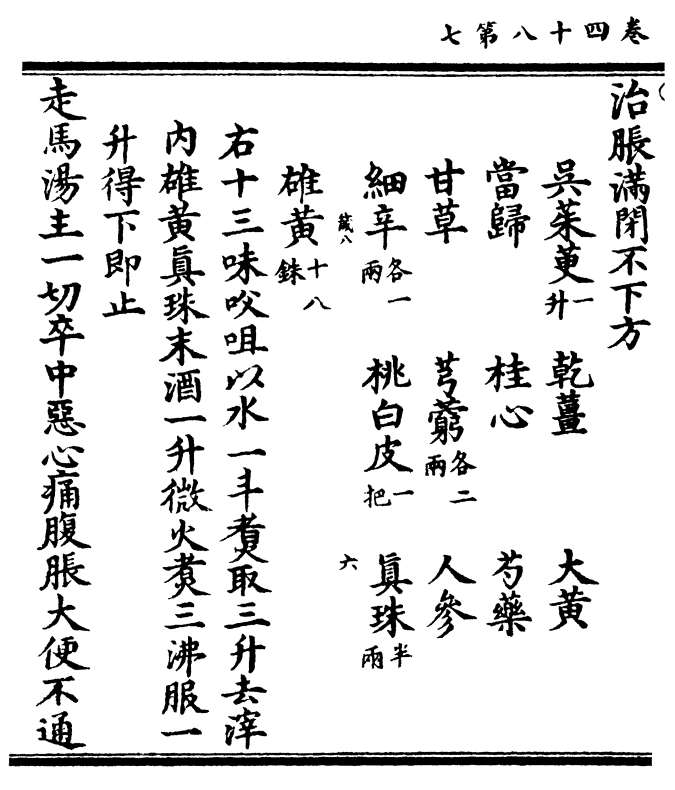 卷四十八第七
治脹滿閉不下方
吳茱萸一升 乾薑 大黃
當歸 桂心 芍藥
甘草 芎藭各二兩 人參
細辛各一兩 桃白皮一把 眞珠半兩
箴八 六
雄黃十八銖
右十三味㕮咀以水一斗煑取三升去滓
内雄黃眞珠末酒一升微火煑三沸服一
升得下即止
走馬湯主一切卒中惡心痛腹脹大便不通